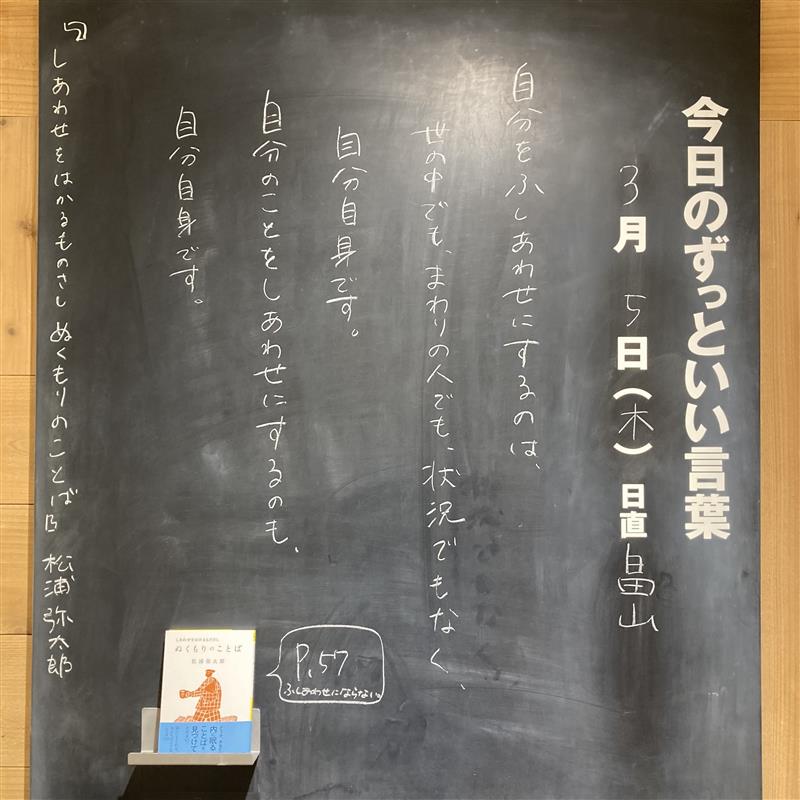 今日のずっといい言葉
3月5日(木)日直 畠山
自分をふしあわせにするのは、
世の中でも、まわりの人でも、状況でもなく、
自分自身です。
自分のことをしあわせにするのも、
自分自身です。
『しあわせをはかるものさし ぬくもりのことば』 松浦弥太郎
P.57
ふしあわせにならない。
しあわせをはかるものさし
ぬくもりのことば
松浦弥太郎
内に眠る
ことばを
見つけて